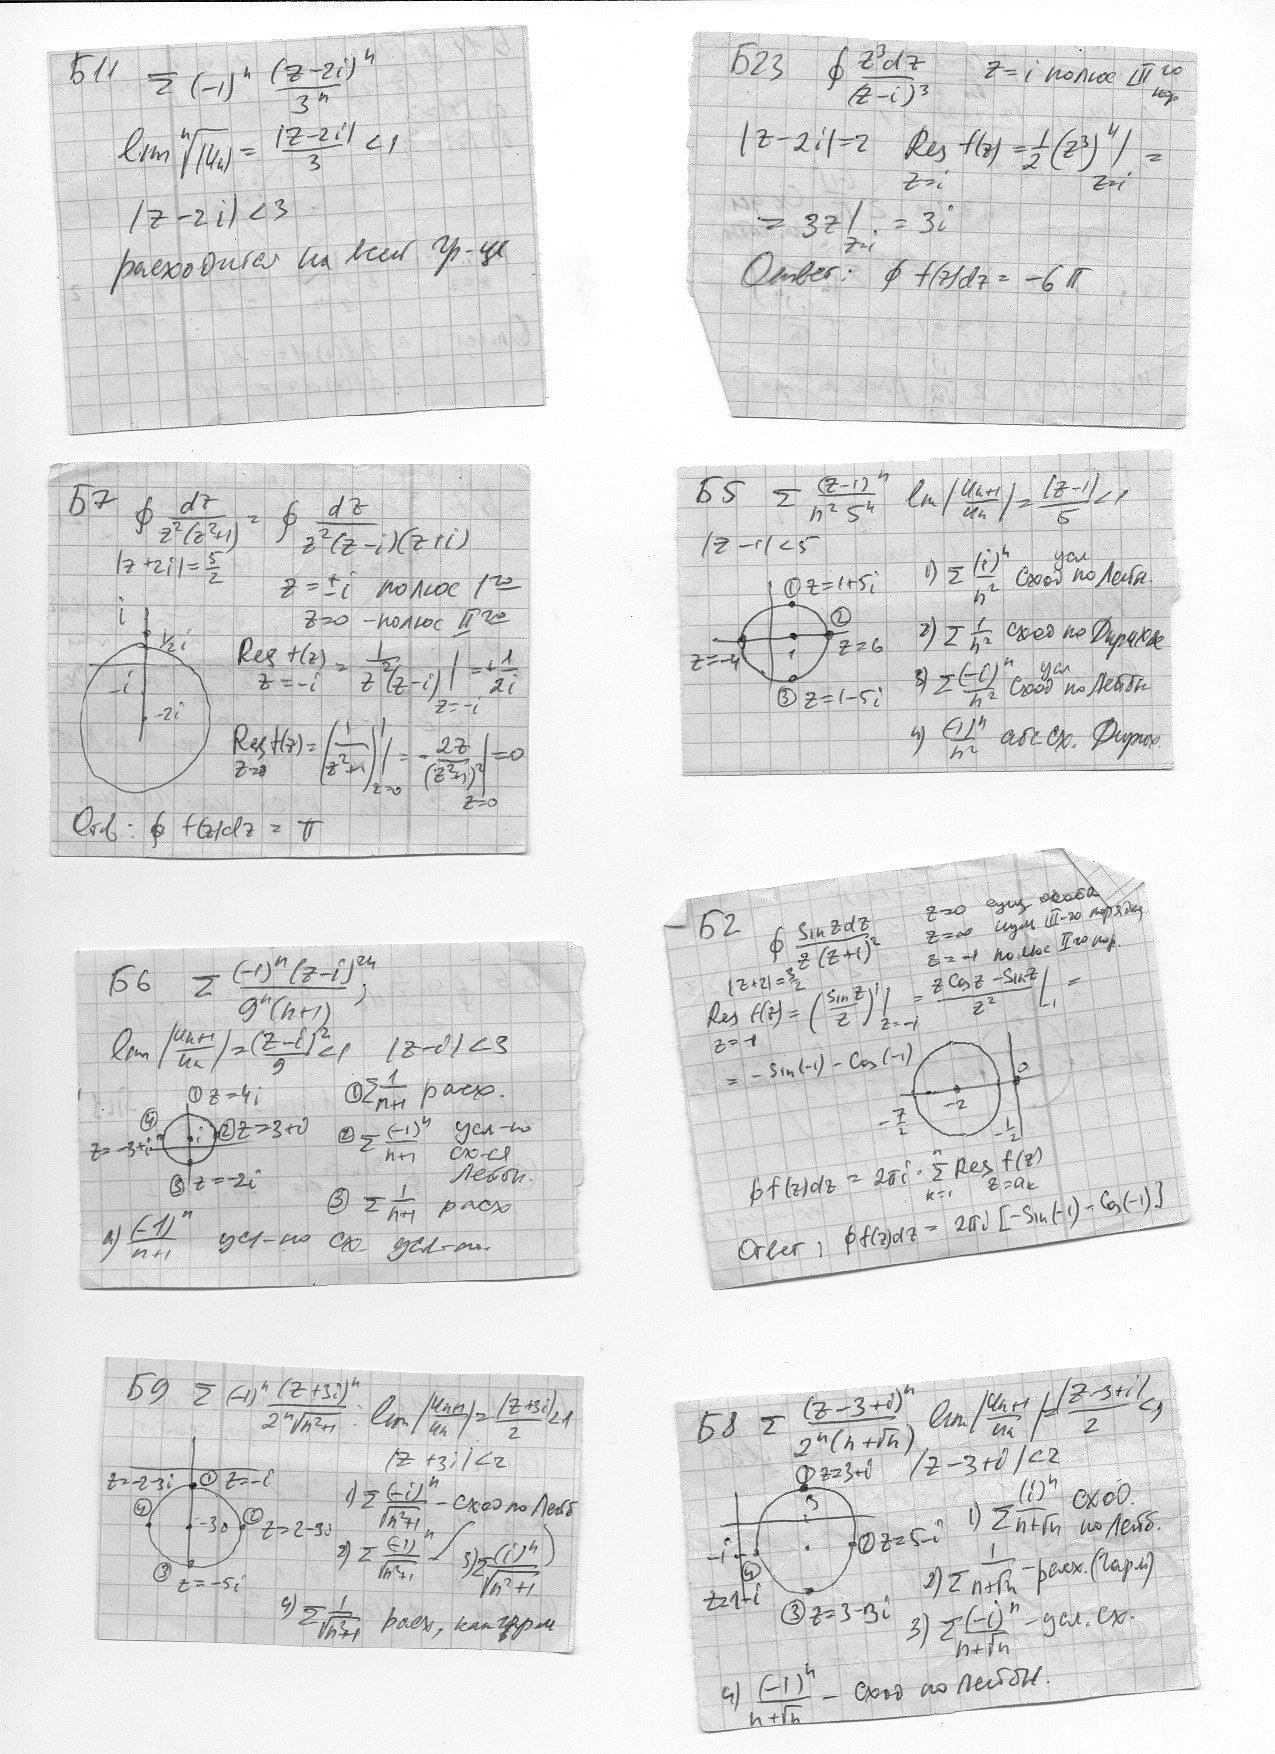 Б11 Σ (-1)^n (z-2i)^n / 3^n
lim ⁿ√|Uₙ| = |z-2i| / 3 < 1
|z-2i| < 3
расходится на всей гр-це
Б23 ∮ z³dz / (z-i)³ z=i полюс III го пор
|z-2i|=2 Res f(z) = 1/2 (z³)'' | =
z=i z=i
= 3z | z=i = 3i
Ответ: ∮ f(z)dz = -6π
Б7 ∮ dz / z²(z²+1) = ∮ dz / z²(z-i)(z+i)
|z+2i| = 5/2
z = ±i полюс I го
z=0 - полюс II го
i
1/2 i
-i
-2i
Res f(z) = 1 / z²(z-i) | = +1/2i
z=-i z=-i
Res f(z) = (1 / z²+1)' | = - 2z / (z²+1)² | = 0
z=0 z=0 z=0
Отв: ∮ f(z)dz = π
Б5 Σ (z-1)^n / n² 5^n lim |Uₙ₊₁ / Uₙ| = |z-1| / 5 < 1
|z-1| < 5
① z=1+5i
②
z=6
z=-4
1
③ z=1-5i
1) Σ (i)^n / n² усл сход по Лейбн.
2) Σ 1/n² сход по Дирихле
3) Σ (-i)^n / n² усл сход по Лейбн
4) (-1)^n / n² абс сх. Дирих.
Б6 Σ (-1)^n (z-i)^2n / 9^n (n+1) ;
lim |Uₙ₊₁ / Uₙ| = (z-i)² / 9 < 1 |z-i| < 3
① z=4i
④
i
② z=3+i
z=-3+i
③ z=-2i
① Σ 1 / n+1 расх.
② Σ (-1)^n / n+1 усл-но сх-ся Лейбн.
③ Σ 1 / n+1 расх
4) (-1)^n / n+1 усл-но сх. усл-но.
Б2 ∮ sin z dz / z(z+1)²
|z+2| = 3/2
z=0 сущ особая
z=∞ нуль III-го порядка
z=-1 полюс II го пор.
Res f(z) = (sin z / z)' | = z Cos z - Sin z / z² | =
z=-1 z=-1 -1
= - Sin(-1) - Cos(-1)
0
-2
-7/2
-1/2
∮ f(z)dz = 2πi · Σ Res f(z)
n
k=1 z=aₖ
Ответ: ∮ f(z)dz = 2πi [-Sin(-1) - Cos(-1)]
Б9 Σ (-1)^n (z+3i)^n / 2^n √n²+1 lim |Uₙ₊₁ / Uₙ| = |z+3i| / 2 < 1
|z+3i| < 2
z=-2-3i ① z=-i
④
② z=2-3i
③
z=-5i
1) Σ (-i)^n / √n²+1 - сход по Лейб
2) Σ (-1)^n / √n²+1 - 3) Σ (i)^n / √n²+1
4) Σ 1 / √n²+1 расх, как гарм
Б8 Σ (z-3+i)^n / 2^n (n+√n) lim |Uₙ₊₁ / Uₙ| = |z-3+i| / 2 < 1
① z=3+i |z-3+i| < 2
3
-i
② z=5-i
④
z=1-i
③ z=3-3i
1) Σ (i)^n / n+√n сход. по Лейб.
2) Σ 1 / n+√n - расх. (гарм)
3) Σ (-i)^n / n+√n - усл. сх.
4) (-1)^n / n+√n - сход по Лейбн.